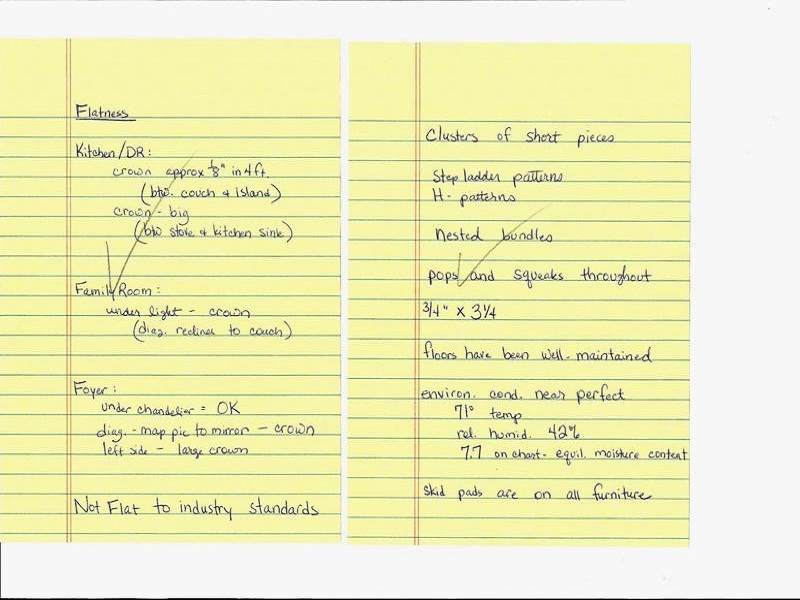 Flatness
Kitchen/DR:
crown approx 1/8" in 4 ft.
(btw. couch & island)
crown - big
(btw stove & kitchen sink)
Family Room:
under light - crown
(diag. recliner to couch)
Foyer:
under chandelier = OK
diag. - map pic to mirror - crown
left side - large crown
Not Flat to industry standards
Clusters of short pieces
Step ladder patterns
H- patterns
Nested bundles
pops and squeaks throughout
3/4" x 3 1/4
floors have been well-maintained
environ. cond. near perfect
71° temp
rel. humid. 42%
7.7 on chart- equil. moisture content
skid pads are on all furniture